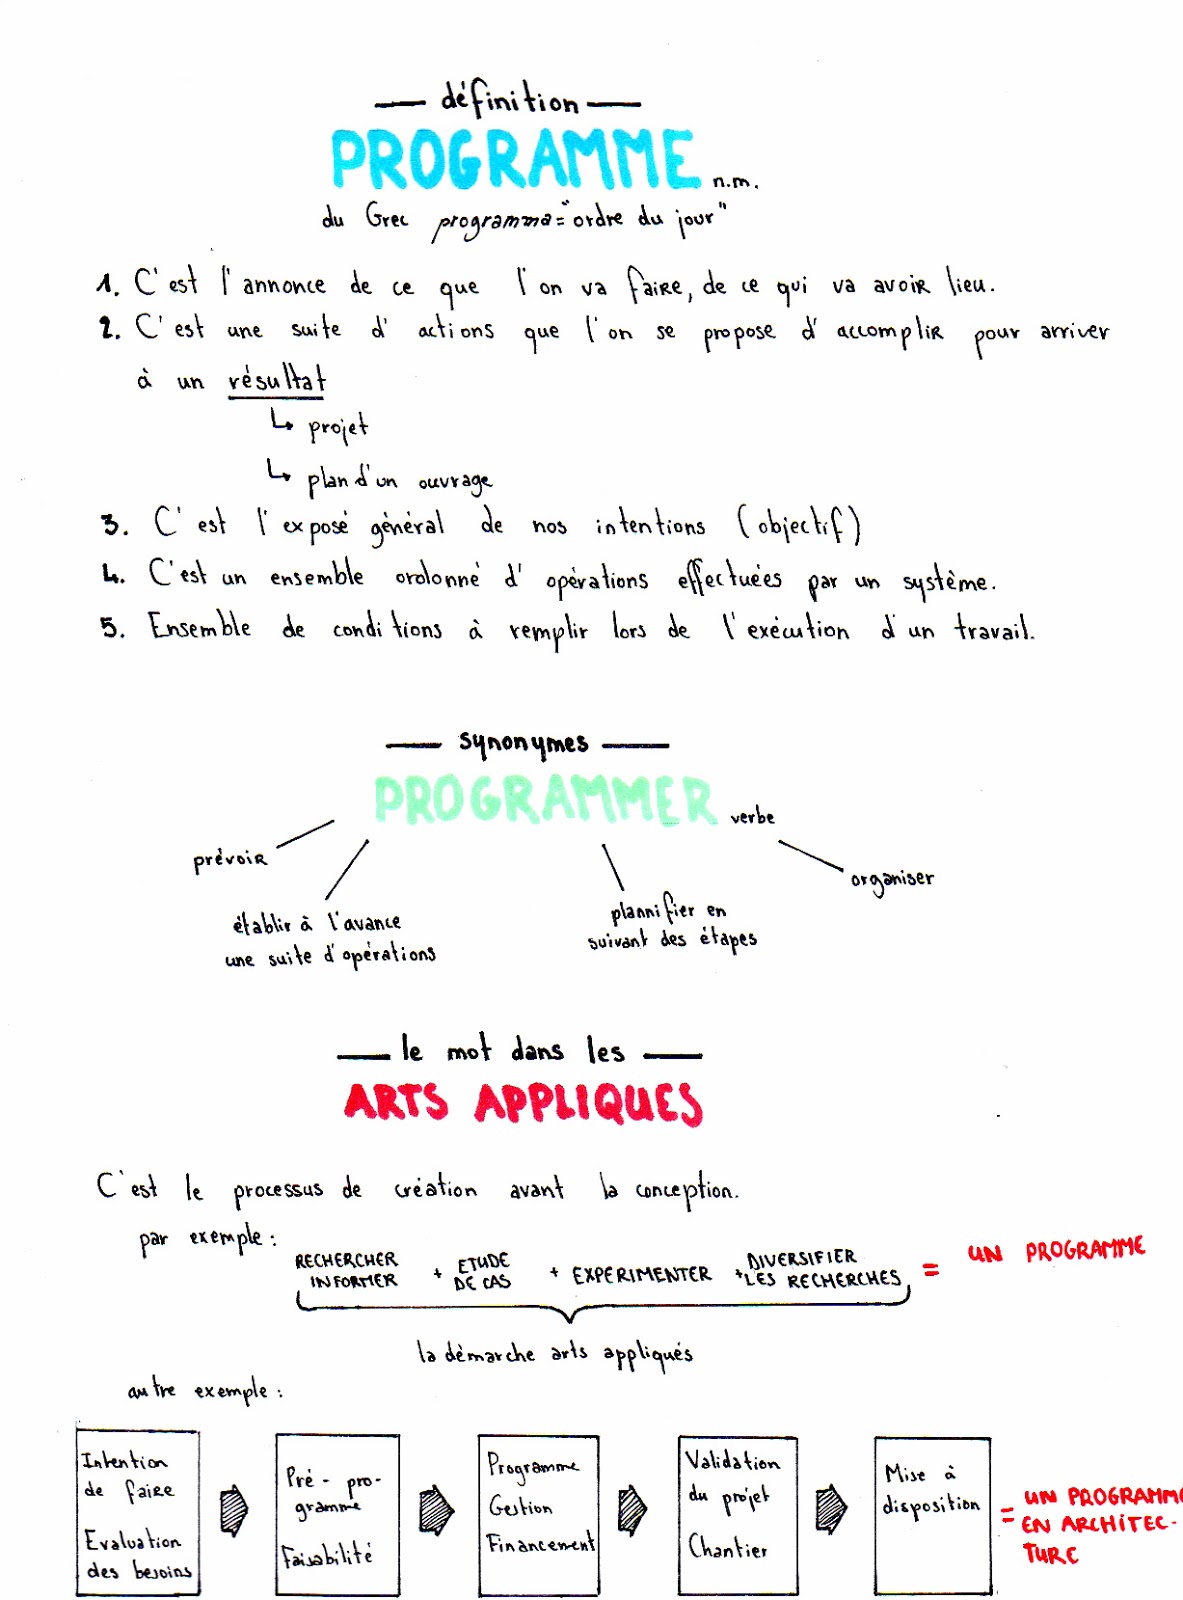 définition
PROGRAMME n.m.
du Grec programma = "ordre du jour"
1. C'est l'annonce de ce que l'on va faire, de ce qui va avoir lieu.
2. C'est une suite d'actions que l'on se propose d'accomplir pour arriver
à un résultat
↳ projet
↳ plan d'un ouvrage
3. C'est l'exposé général de nos intentions (objectif)
4. C'est un ensemble ordonné d'opérations effectuées par un système.
5. Ensemble de conditions à remplir lors de l'exécution d'un travail.
synonymes
PROGRAMMER verbe
prévoir
établir à l'avance
une suite d'opérations
plannifier en
suivant des étapes
organiser
le mot dans les
ARTS APPLIQUES
C'est le processus de création avant la conception.
par exemple :
RECHERCHER
INFORMER
+ ETUDE
DE CAS
+ EXPERIMENTER
+ DIVERSIFIER
LES RECHERCHES
= UN PROGRAMME
la démarche arts appliqués
autre exemple :
Intention
de faire
Evaluation
des besoins
Pré-pro-
gramme
Faisabilité
Programme
Gestion
Financement
Validation
du projet
Chantier
Mise à
disposition
= UN PROGRAMME
EN ARCHITEC-
TURE